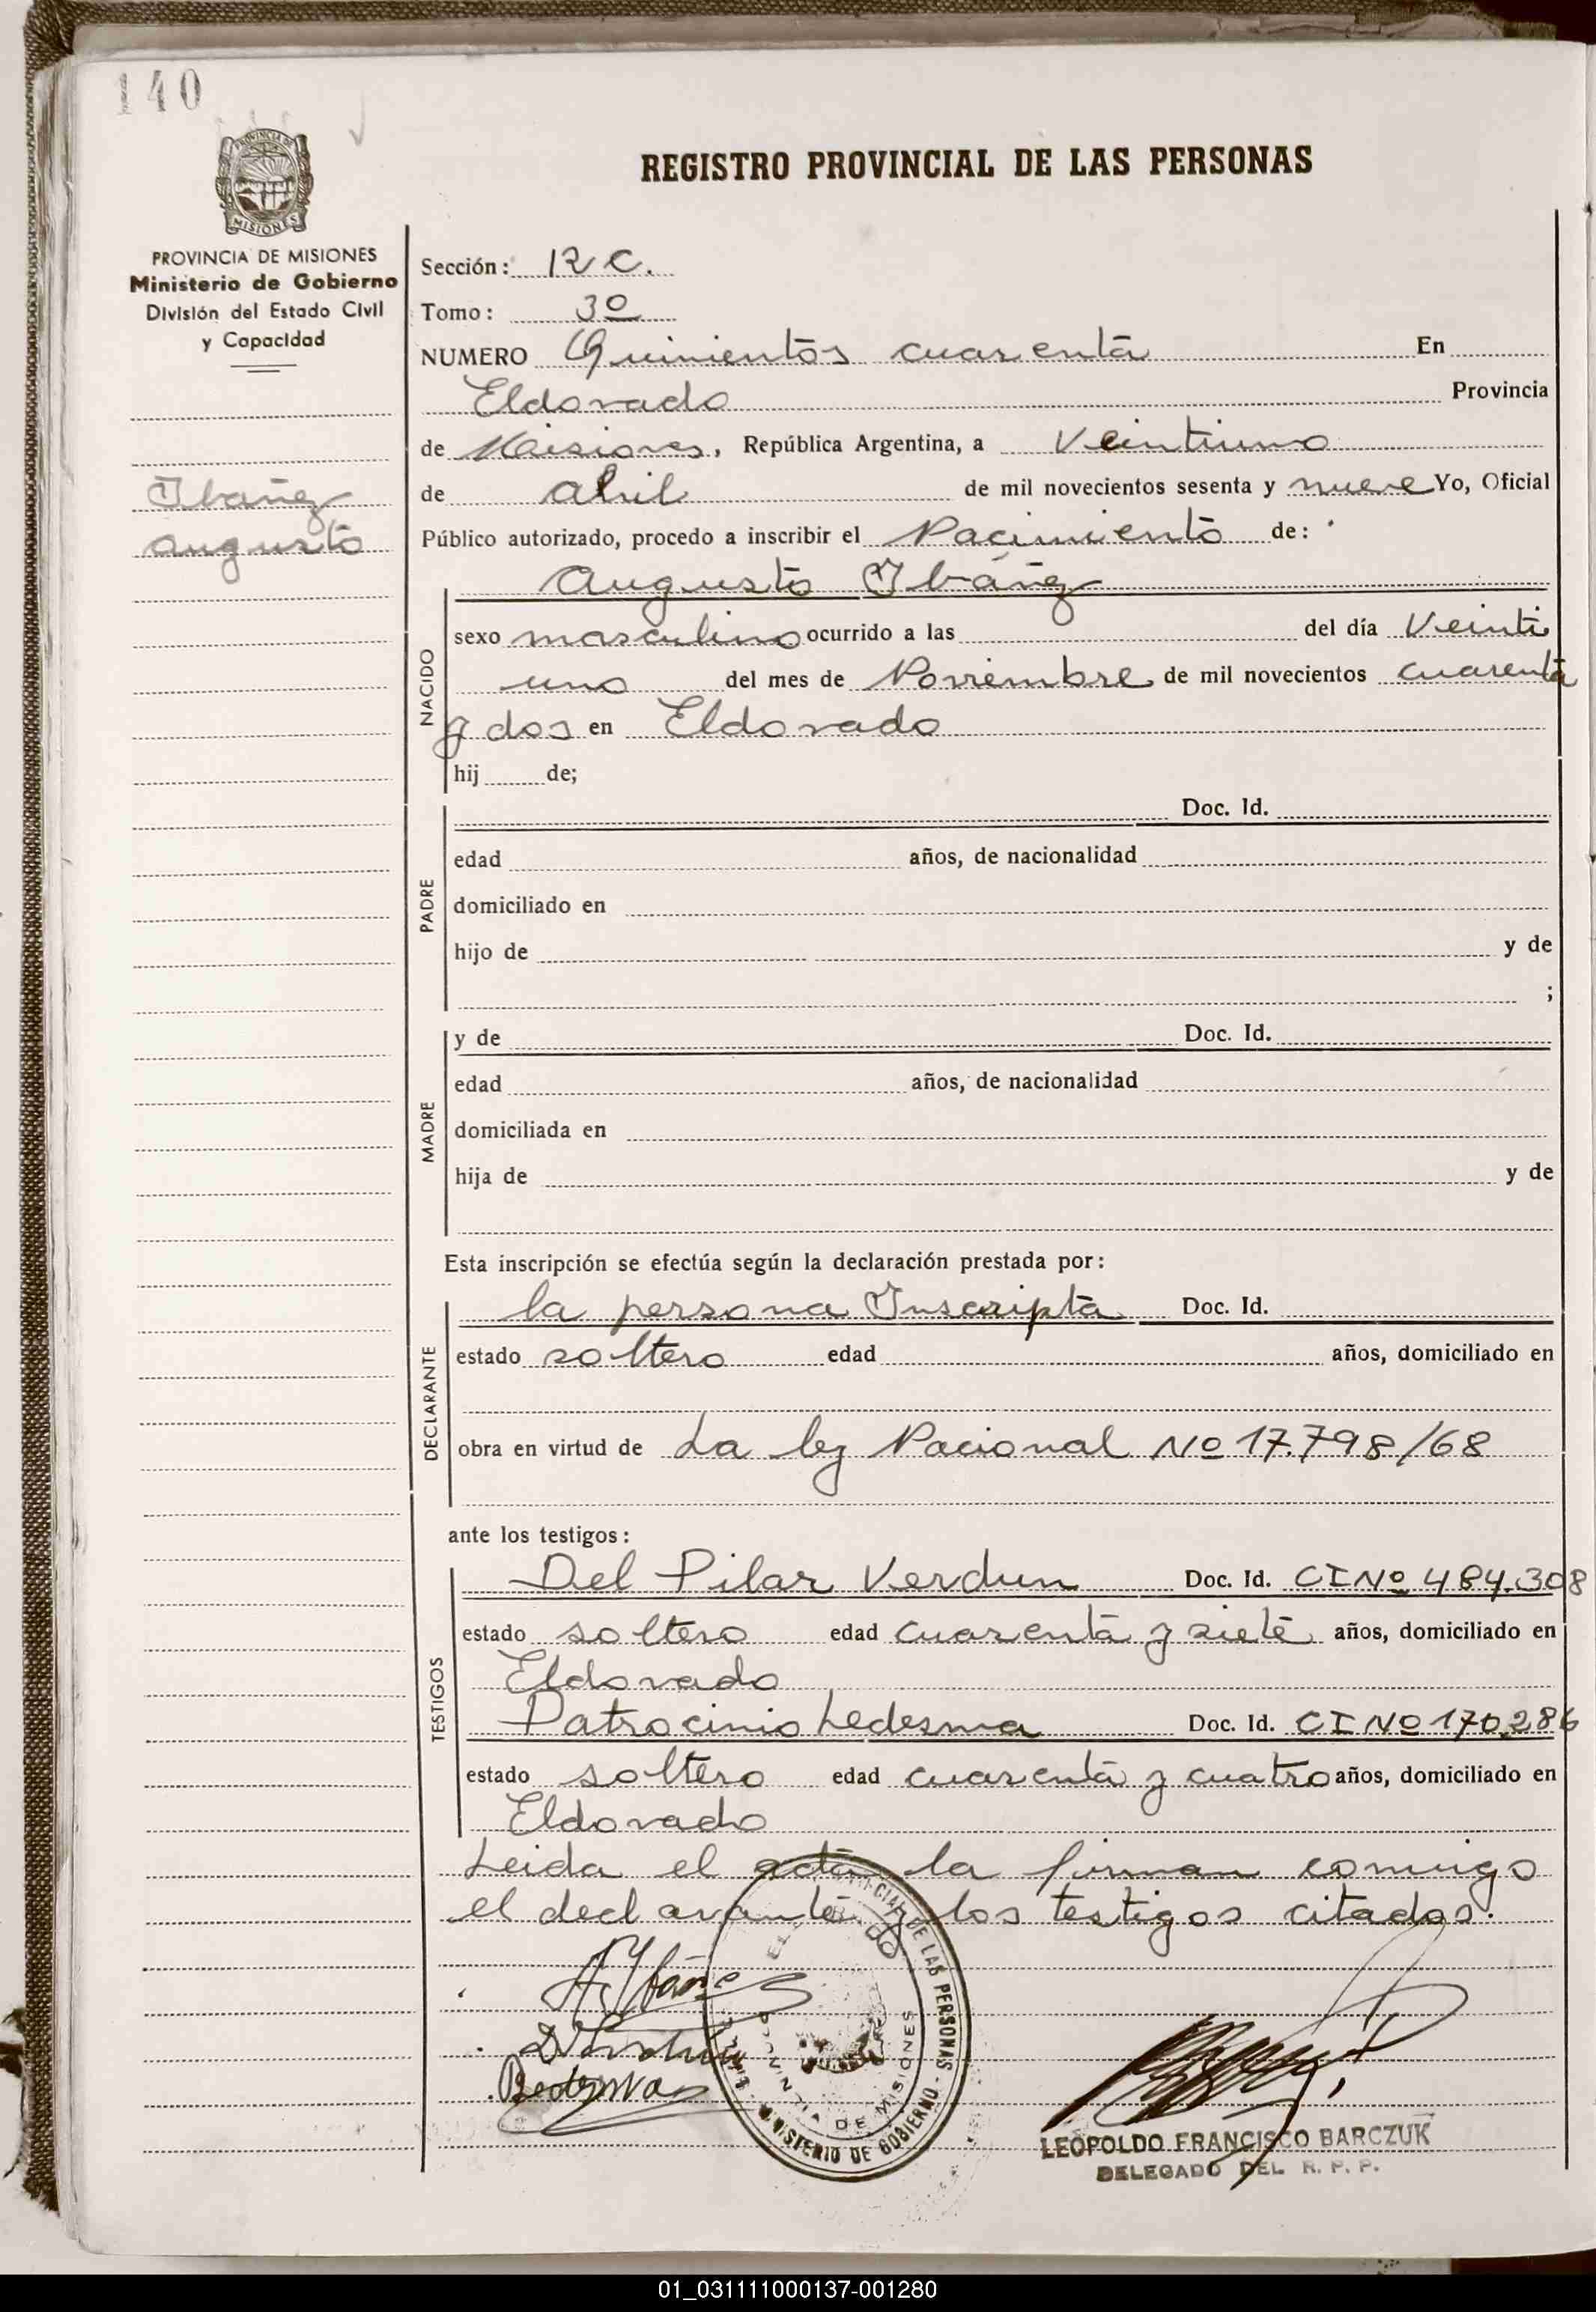 140
REGISTRO PROVINCIAL DE LAS PERSONAS
PROVINCIA DE MISIONES
MISIONES
PROVINCIA DE MISIONES
Ministerio de Gobierno
División del Estado Civil
y Capacidad
Ibañez
Augusto
Sección: 1R C.
Tomo: 3º
NUMERO Quinientos cuarenta En
Eldorado Provincia
de Misiones, República Argentina, a Veintiuno
de abril de mil novecientos sesenta y nueve Yo, Oficial
Público autorizado, procedo a inscribir el Nacimiento de:
Augusto Ibáñez
NACIDO
sexo masculino ocurrido a las del día Veinti
uno del mes de Noviembre de mil novecientos cuarenta
y dos en Eldorado
hij de;
PADRE
Doc. Id.
edad años, de nacionalidad
domiciliado en
hijo de y de
;
MADRE
y de Doc. Id.
edad años, de nacionalidad
domiciliada en
hija de y de
Esta inscripción se efectúa según la declaración prestada por:
DECLARANTE
la persona Inscripta Doc. Id.
estado soltero edad años, domiciliado en
obra en virtud de La ley Nacional Nº 17.798/68
ante los testigos:
TESTIGOS
Del Pilar Verdun Doc. Id. CI Nº 484.308
estado soltero edad cuarenta y siete años, domiciliado en
Eldorado
Patrocinio Ledesma Doc. Id. CI Nº 170.286
estado soltero edad cuarenta y cuatro años, domiciliado en
Eldorado
Leida el acta la firman comigo
el declarante y los testigos citados.
A. Ibáñez
MINISTERIO DE GOBIERNO - DE LAS PERSONAS
PROVINCIA DE MISIONES
LEOPOLDO FRANCISCO BARCZUK
DELEGADO DEL R. P. P.
01_031111000137-001280